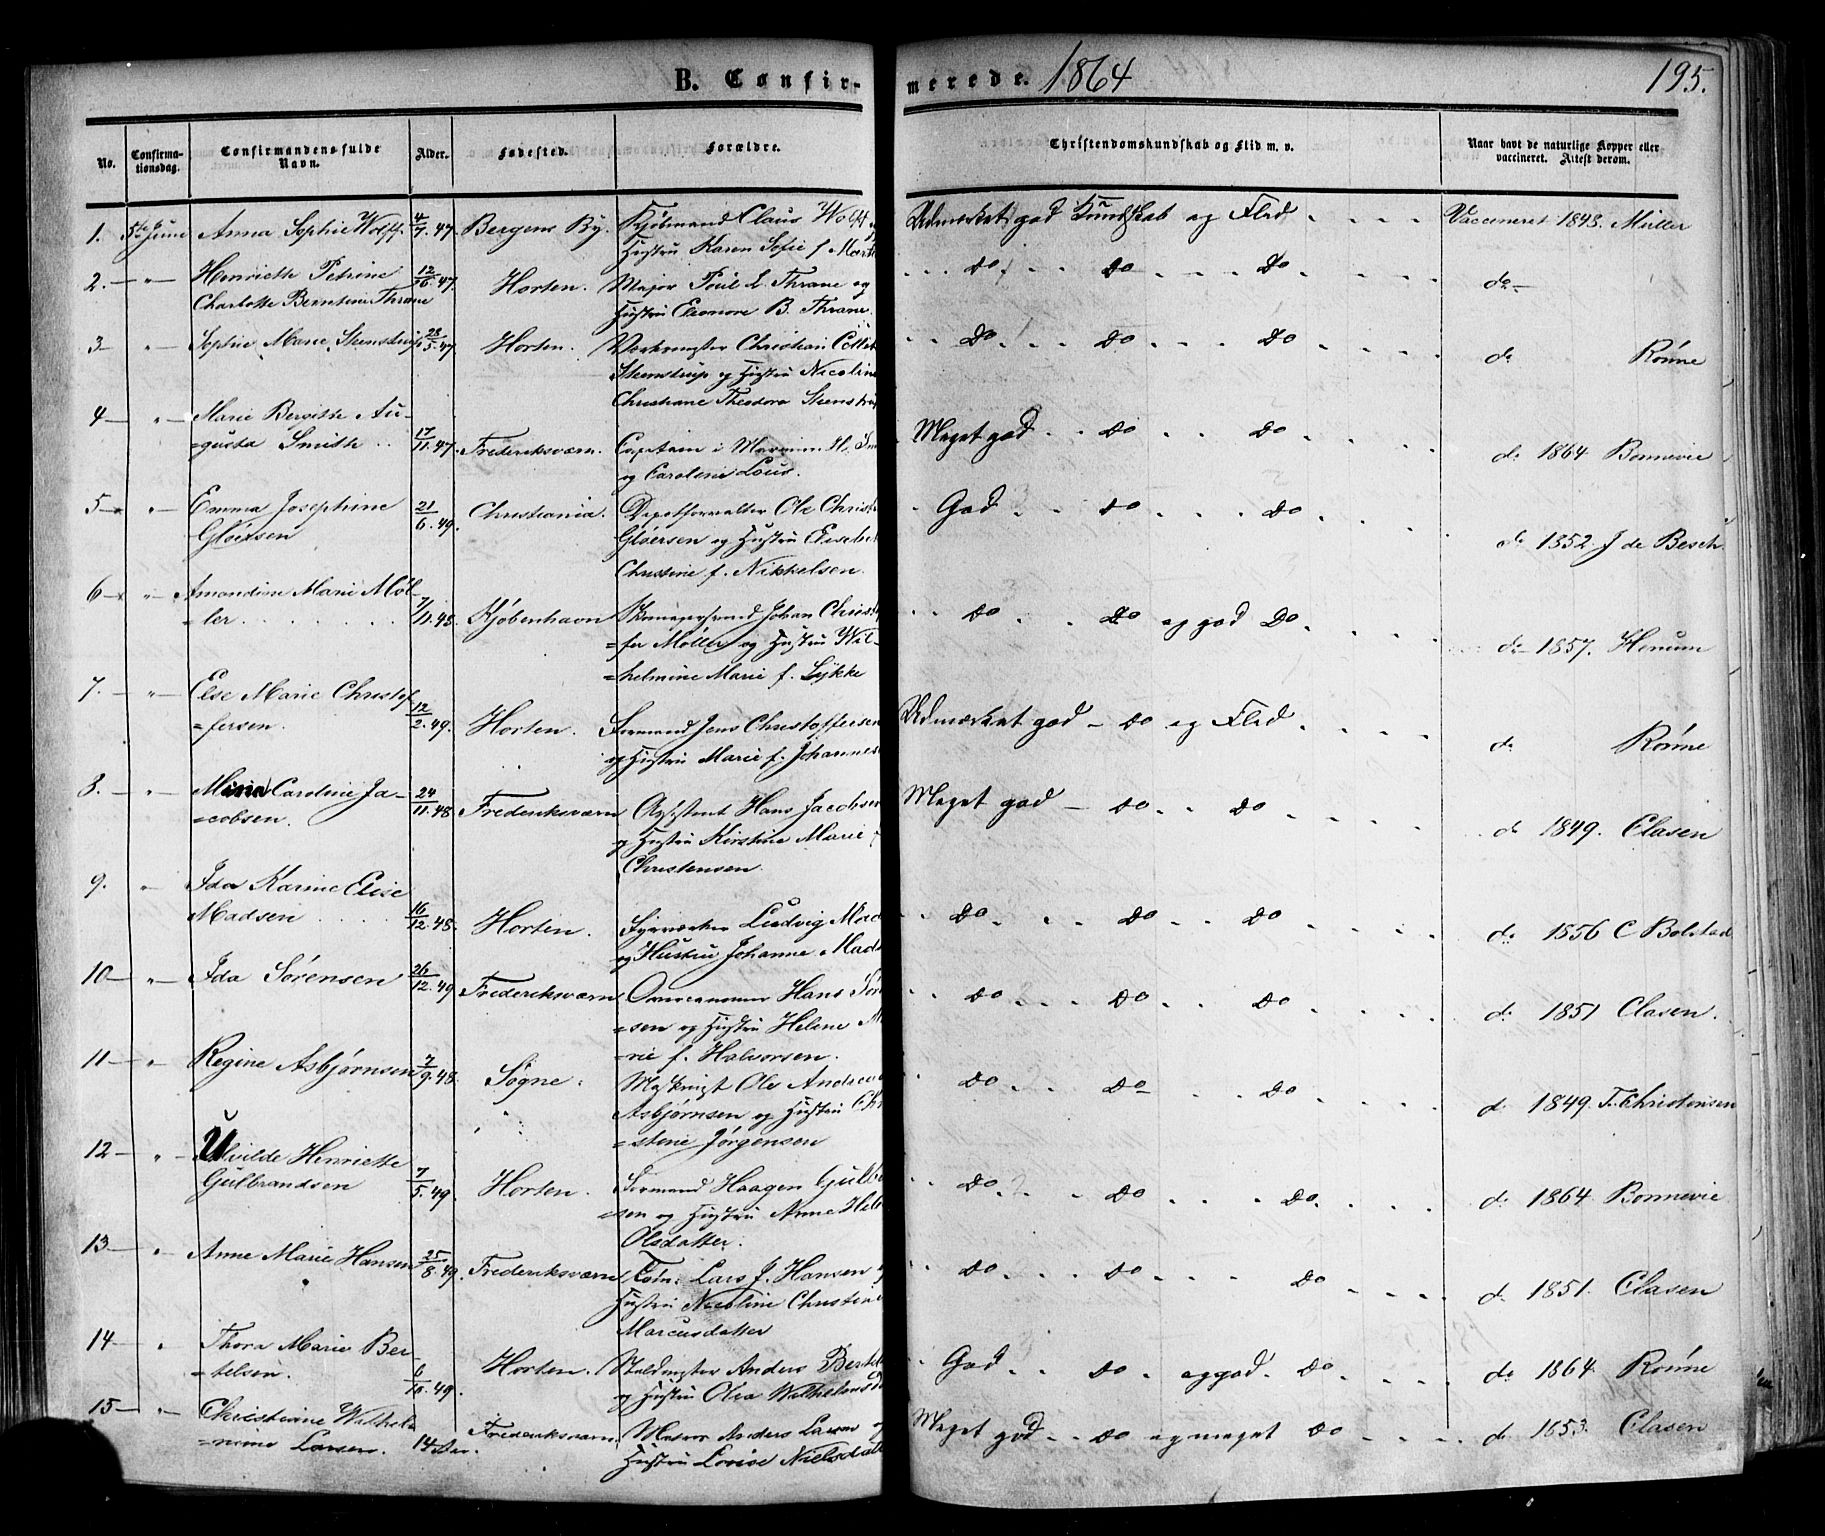 B. Confir-
merede. 1864
195.
No.
Confirma-
tionsdag.
Confirmandens fulde
Navn.
Alder.
Fødested.
Forældre.
Christendomskundskab og Flid m. v.
Naar havt de naturlige Kopper eller
vaccineret. Attest derom.
1. 5te Juni Anna Sophie Wolff 4/7.47. Bergens By. Kjøbmand Claus Wolff
Hustru Karen Sofie f.
Udmærket god Kundskab og Flid Vaccineret 1848. Müller
2. — " — Henriette Petrine 12/10.47. Horten. Major Poul L. Thrane og
Charlotte Berntine Thrane Hustru Eleonore B. Thrane.
Do Do Do do —
3 — " — Sophie Marie Steenstrup 28/5.47. Horten. Værkmester Christian Collet
Steenstrup og Hustru Nicoline
Christiane Theodora Steenstrup
Do Do Do do Rønne
4 — " — Marie Bergitte Au-
=gusta Smith 17/11.47. Frederiksværn. Capitain i Marinen
og Caroline Lous.
Meget god Do Do do 1864 Bonnevie
5 — " — Emma Josephine 21/6.49. Christiania. Depotforvalter Ole Christ
Gløersen Gløersen og Hustru Elisabet
Christine f. Nikkelsen.
God Do Do do 1852. J de Besch
6 — " — Amandine Marie Møl-
=ler 7/11.48. Kjøbenhavn Johan Christ
=fer Møller og Hustru Wil-
=helmine Marie f. Lykke
Do Do og god Do do 1857. Henum
7. — " — Else Marie Christof
=fersen. 12/2.49. Horten. Formand Jens Christoffersen
og Hustru Marie f. Johannes
Udmærket god — Do og Flid do Rønne
8. — " — Mina Caroline Ja-
=cobsen. 24/11.48. Frederiksværn Assistent Hans Jacobsen
og Hustru Kirstine Marie
Christensen
Meget god — Do Do do 1849. Clasen
9. " — Ida Karine Elise
Madsen 16/12.48. Horten. Fyrværker Ludvig Mad
og Hustru Johanne Mad
Do Do Do do 1856 C Bolstad
10 — " — Ida Sørensen 26/12.49 Frederiksværn Hans Sør
=sen og Hustru Helene M
=rie f. Halvorsen.
Do Do Do do 1851 Clasen.
11 — " — Regine Asbjørnsen 7/9.48. Søgne. Ole Andreas
Asbjørnsen og Hustru Chr
=stine Jørgensen
Do Do — Do do 1849. T. Christensen
12 — " — Ulvilde Henriette
Gulbrandsen 7/5.49 Horten. Formand Haagen Gulbr
=sen og Hustru Anne Hel
Olsdatter.
Do Do Do do 1864 Bonnevie
13 — " — Anne Marie Hansen 25/8.49. Frederiksværn Tøm: Lars J. Hansen
Hustru Nicoline Christine
Marcusdatter
Do Do Do do 1851. Clasen
14 — " Thora Marie Ber-
=telsen. 6/10.49. Horten. Anders Bertel
og Hustru Olea Wilhelmsd
God Do og god Do do 1864 Rønne
15 — " — Christiane Wilhel
=mine Larsen. 14 Aar. Frederiksværn. Anders Larsen
Hustru Lovise Nielsdatt
Meget god Do og meget Do do 1853. Clasen